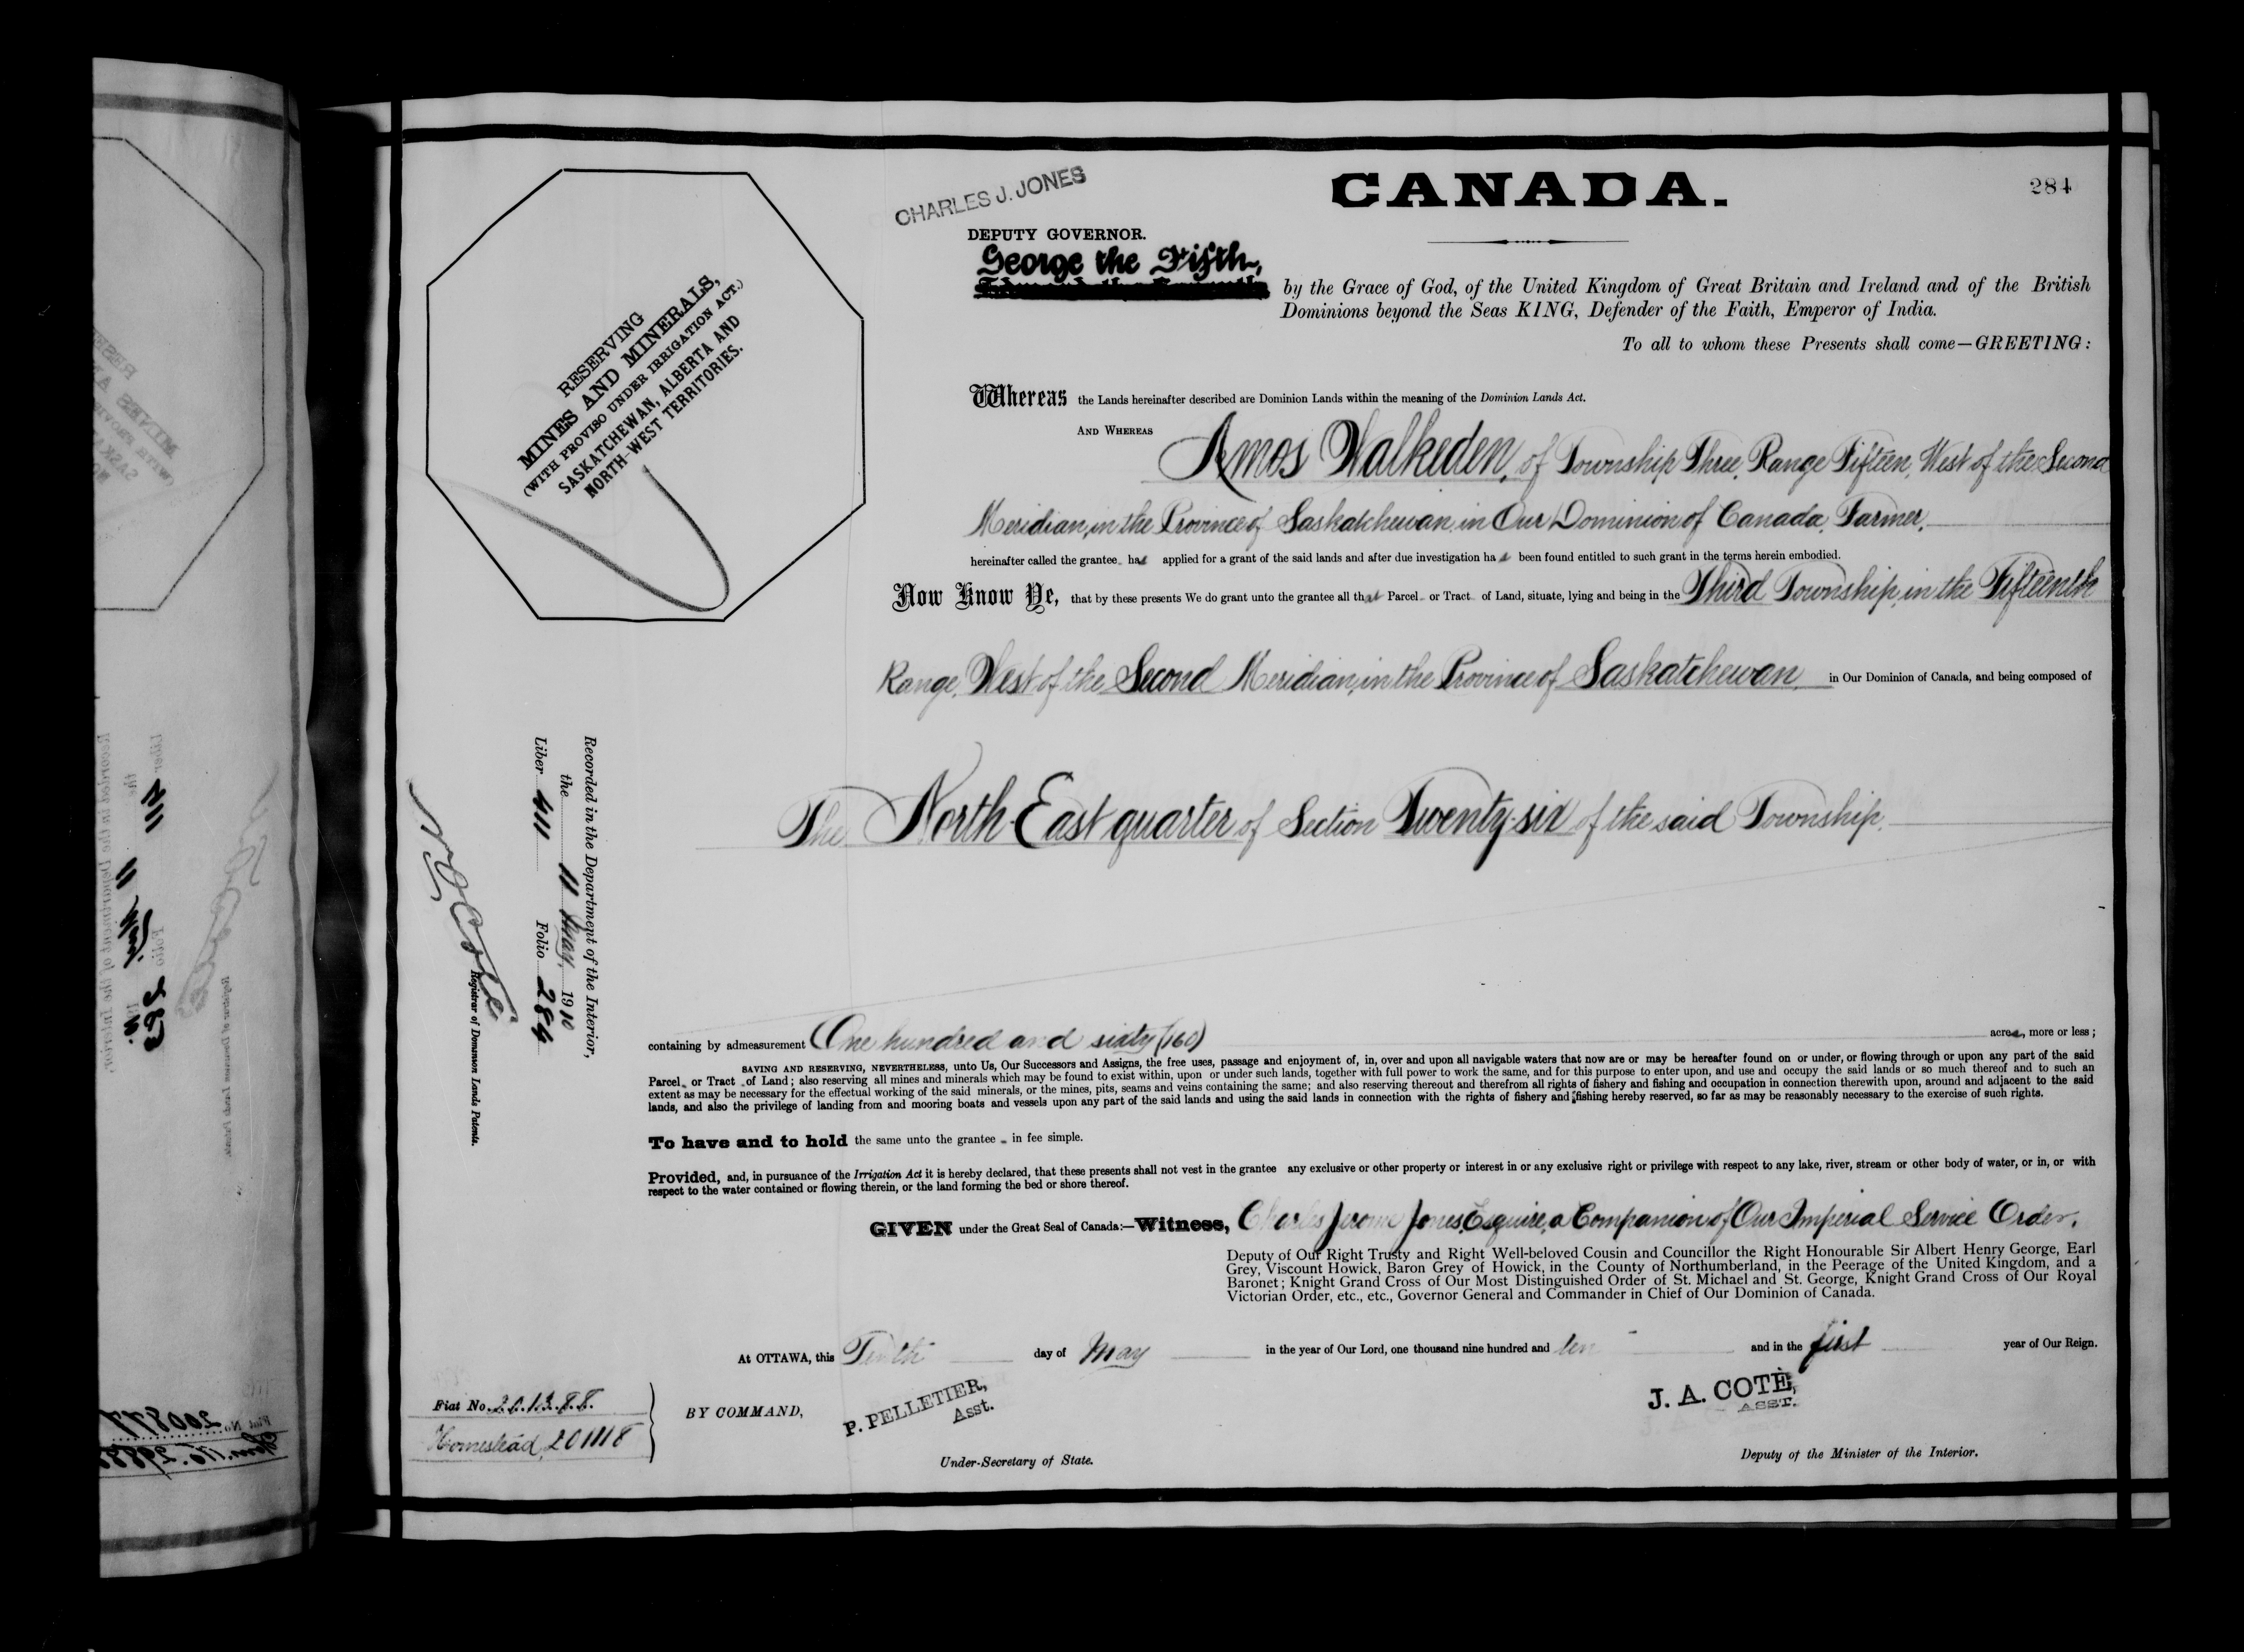 CANADA.
284
CHARLES J. JONES
DEPUTY GOVERNOR.
George the Fifth,
by the Grace of God, of the United Kingdom of Great Britain and Ireland and of the British
Dominions beyond the Seas KING, Defender of the Faith, Emperor of India.
To all to whom these Presents shall come—GREETING:
RESERVING
MINES AND MINERALS,
(WITH PROVISO UNDER IRRIGATION ACT.)
SASKATCHEWAN, ALBERTA AND
NORTH-WEST TERRITORIES.
Whereas the Lands hereinafter described are Dominion Lands within the meaning of the Dominion Lands Act.
AND WHEREAS Amos Walkeden, of Township Three, Range Fifteen, West of the Second
Meridian, in the Province of Saskatchewan in Our Dominion of Canada, Farmer,
hereinafter called the grantee has applied for a grant of the said lands and after due investigation has been found entitled to such grant in the terms herein embodied.
Now Know Ye, that by these presents We do grant unto the grantee all that Parcel or Tract of Land, situate, lying and being in the Third Township, in the Fifteenth
Range, West of the Second Meridian, in the Province of Saskatchewan, in Our Dominion of Canada, and being composed of
The North-East quarter of Section Twenty-six of the said Township.
Recorded in the Department of the Interior,
the 11 May, 1910
Liber 411 Folio 284
Registrar of Dominion Lands Patents.
containing by admeasurement One hundred and sixty (160) acres, more or less;
SAVING AND RESERVING, NEVERTHELESS, unto Us, Our Successors and Assigns, the free uses, passage and enjoyment of, in, over and upon all navigable waters that now are or may be hereafter found on or under, or flowing through or upon any part of the said
Parcel or Tract of Land; also reserving all mines and minerals which may be found to exist within, upon or under such lands, together with full power to work the same, and for this purpose to enter upon, and use and occupy the said lands or so much thereof and to such an
extent as may be necessary for the effectual working of the said minerals, or the mines, pits, seams and veins containing the same; and also reserving thereout and therefrom all rights of fishery and fishing and occupation in connection therewith upon, around and adjacent to the said
lands, and also the privilege of landing from and mooring boats and vessels upon any part of the said lands and using the said lands in connection with the rights of fishery and fishing hereby reserved, so far as may be reasonably necessary to the exercise of such rights.
To have and to hold the same unto the grantee in fee simple.
Provided, and, in pursuance of the Irrigation Act it is hereby declared, that these presents shall not vest in the grantee any exclusive or other property or interest in or any exclusive right or privilege with respect to any lake, river, stream or other body of water, or in, or with
respect to the water contained or flowing therein, or the land forming the bed or shore thereof.
GIVEN under the Great Seal of Canada:—Witness, Charles Jerome Jones, Esquire, a Companion of Our Imperial Service Order,
Deputy of Our Right Trusty and Right Well-beloved Cousin and Councillor the Right Honourable Sir Albert Henry George, Earl
Grey, Viscount Howick, Baron Grey of Howick, in the County of Northumberland, in the Peerage of the United Kingdom, and a
Baronet; Knight Grand Cross of Our Most Distinguished Order of St. Michael and St. George, Knight Grand Cross of Our Royal
Victorian Order, etc., etc., Governor General and Commander in Chief of Our Dominion of Canada.
At OTTAWA, this Tenth day of May in the year of Our Lord, one thousand nine hundred and ten and in the first year of Our Reign.
Fiat No. 201388.
Homestead, 201118
BY COMMAND,
P. PELLETIER,
Asst.
Under-Secretary of State.
J. A. COTÉ,
ASST.
Deputy of the Minister of the Interior.